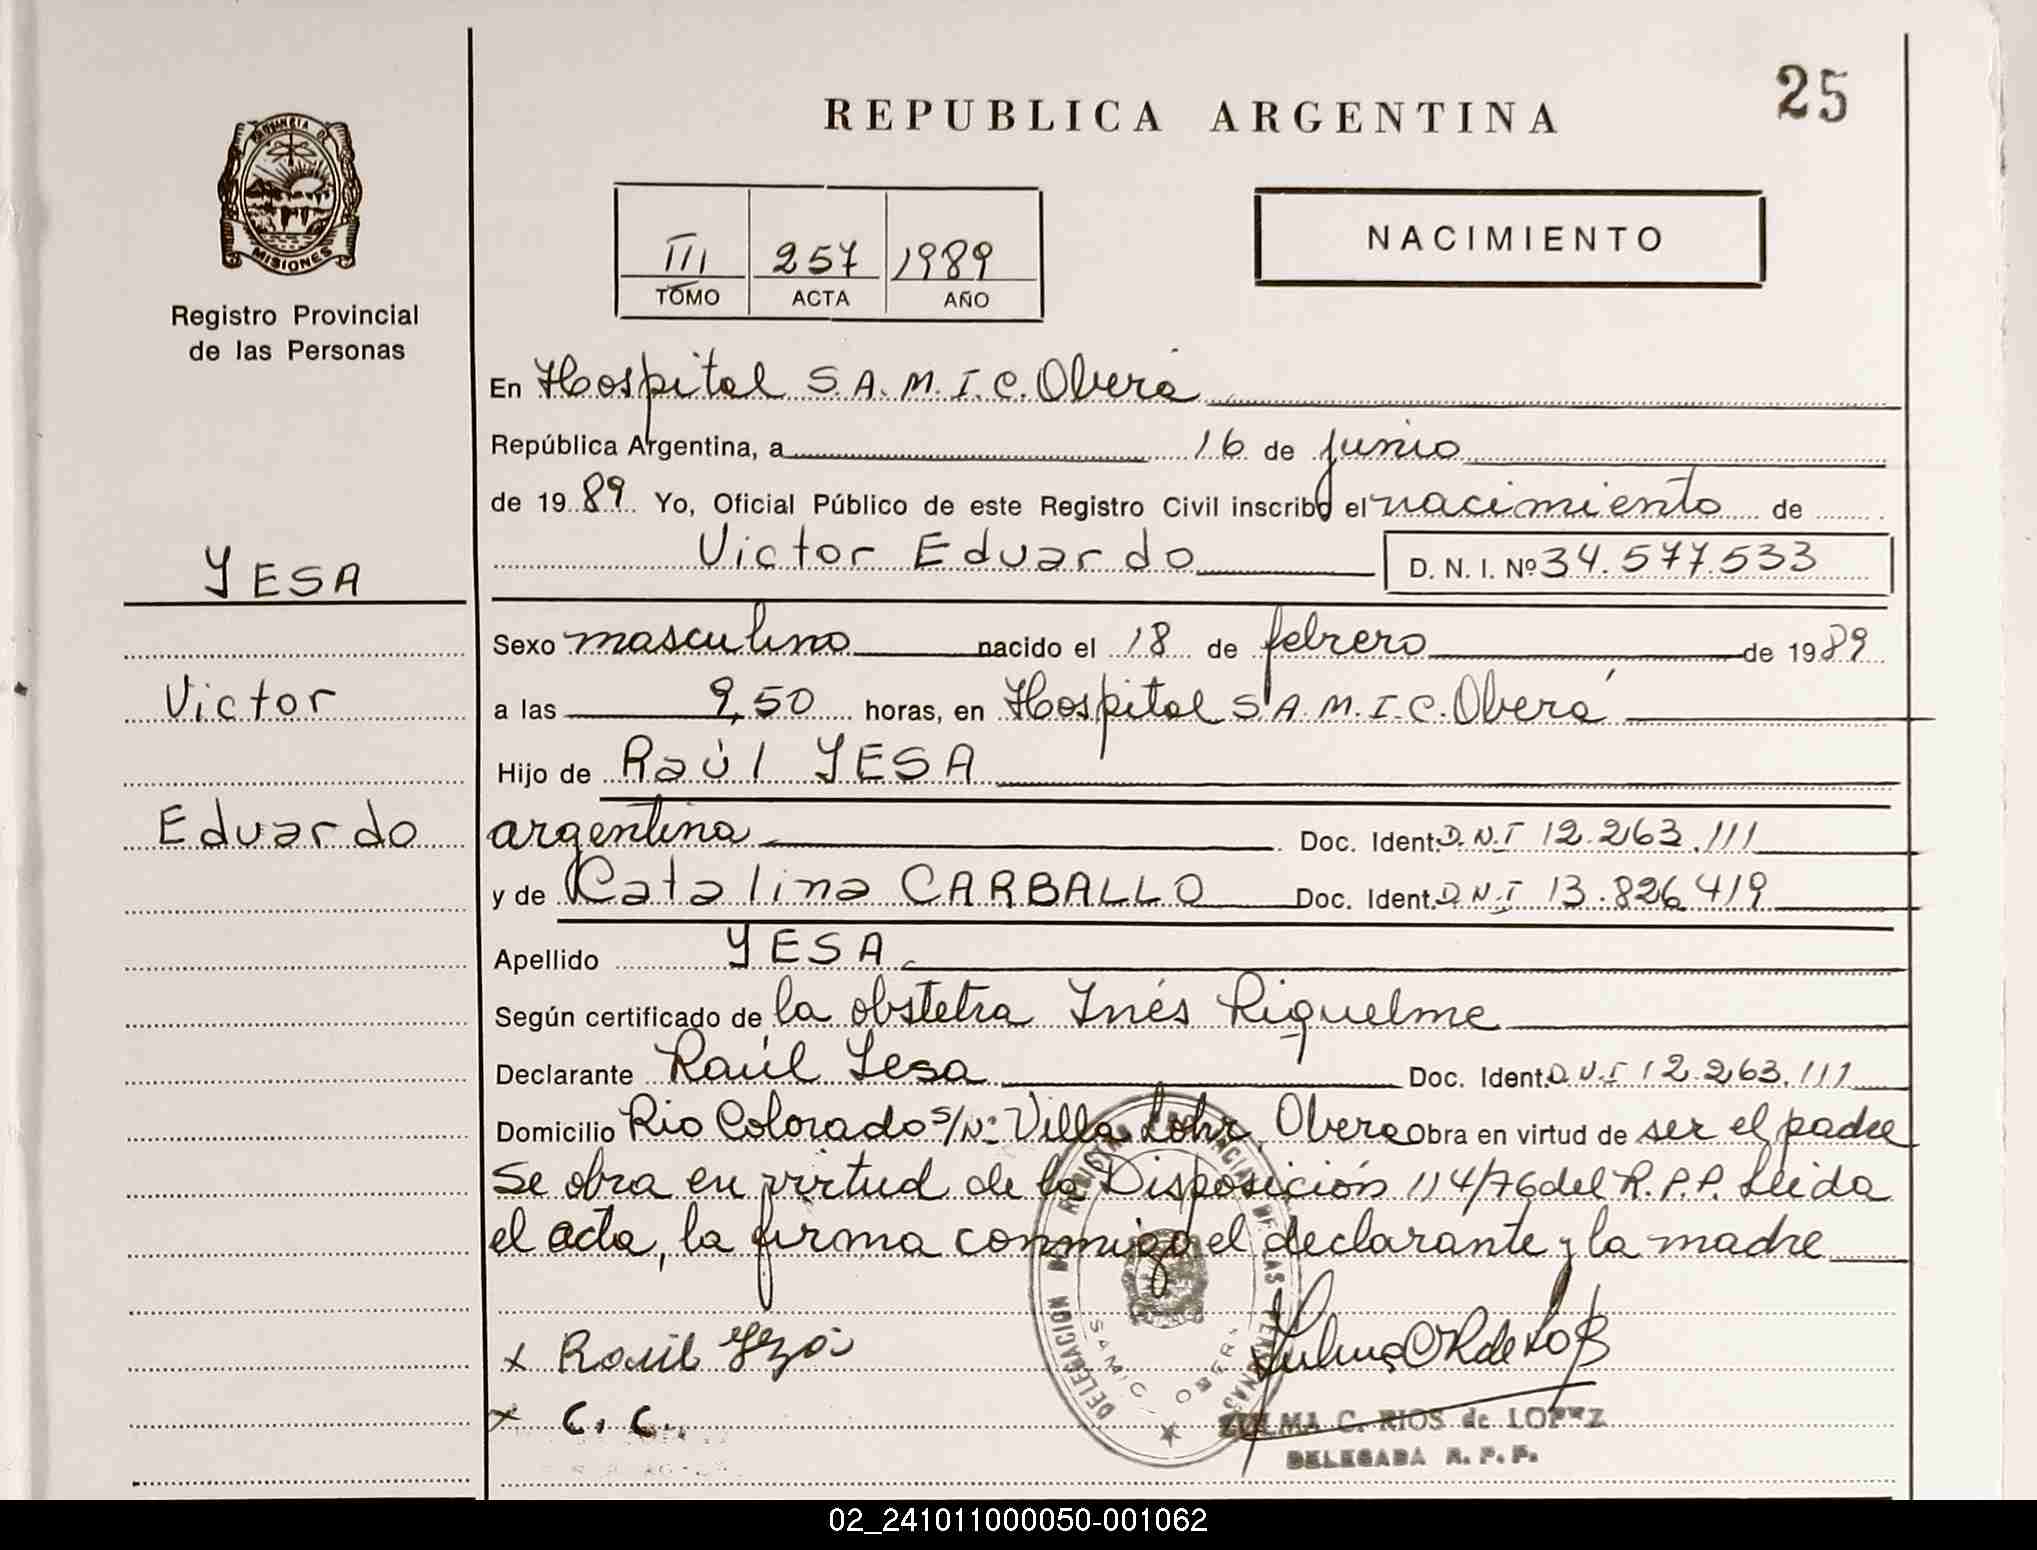 REPUBLICA ARGENTINA
25
PROVINCIA DE
MISIONES
Registro Provincial
de las Personas
III 257 1989
TOMO ACTA AÑO
NACIMIENTO
En Hospital S.A.M.I.C. Oberá
República Argentina, a 16 de junio
de 1989 Yo, Oficial Público de este Registro Civil inscribo el nacimiento de
Victor Eduardo D. N. I. Nº 34.577.533
YESA
Victor
Eduardo
Sexo masculino nacido el 18 de febrero de 1989
a las 9,50 horas, en Hospital S.A.M.I.C. Oberá
Hijo de Raúl YESA
argentina Doc. Ident. D.N.I 12.263.111
y de Catalina CARBALLO Doc. Ident. D.N.I 13.826.419
Apellido YESA
Según certificado de la obstetra Inés Riquelme
Declarante Raúl Yesa Doc. Ident. D.N.I 12.263.111
Domicilio Rio Colorado s/Nº Villa Lohr Obera Obra en virtud de ser el padre
Se obra en virtud de la Disposición 114/76 del R.P.P. Leida
el acta, la firma conmigo el declarante y la madre
x Raúl
x C. C.
DELEGACION DE REGISTRO PROVINCIAL DE LAS PERSONAS
SAMIC - OBERA
ZULMA C. RIOS de LOPEZ
DELEGADA R. P. P.
02_241011000050-001062